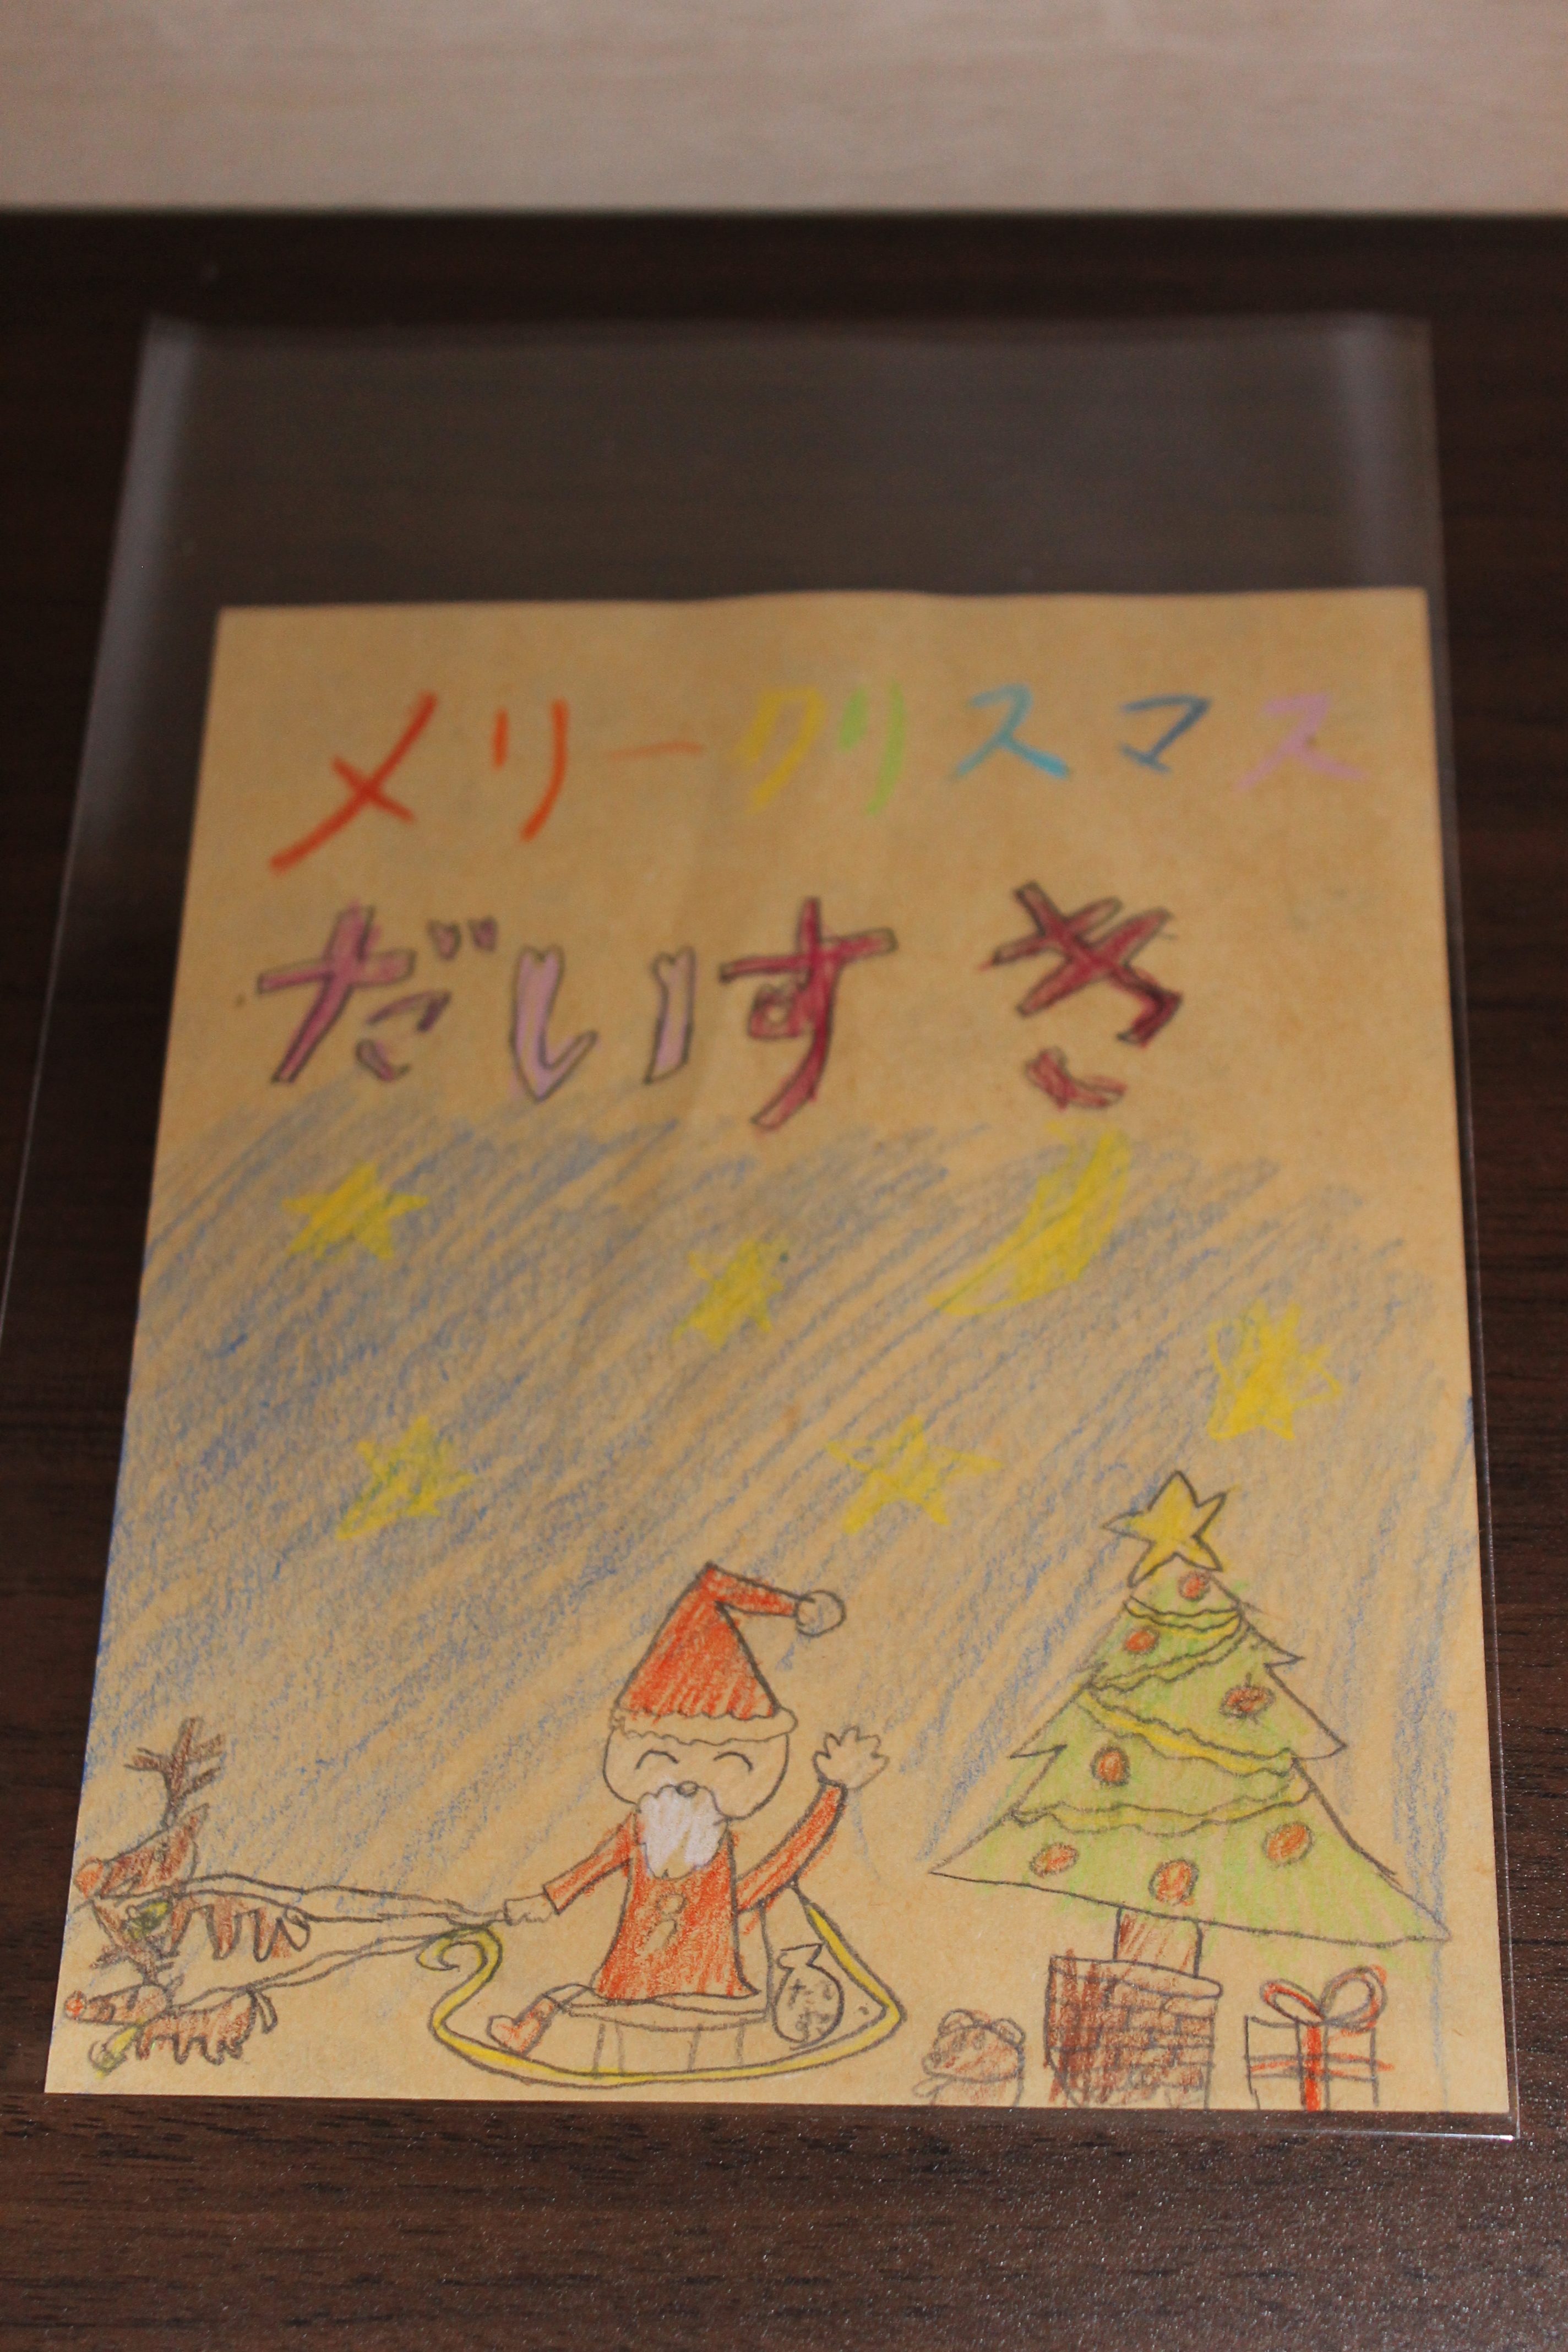 メリークリスマス
だいすき